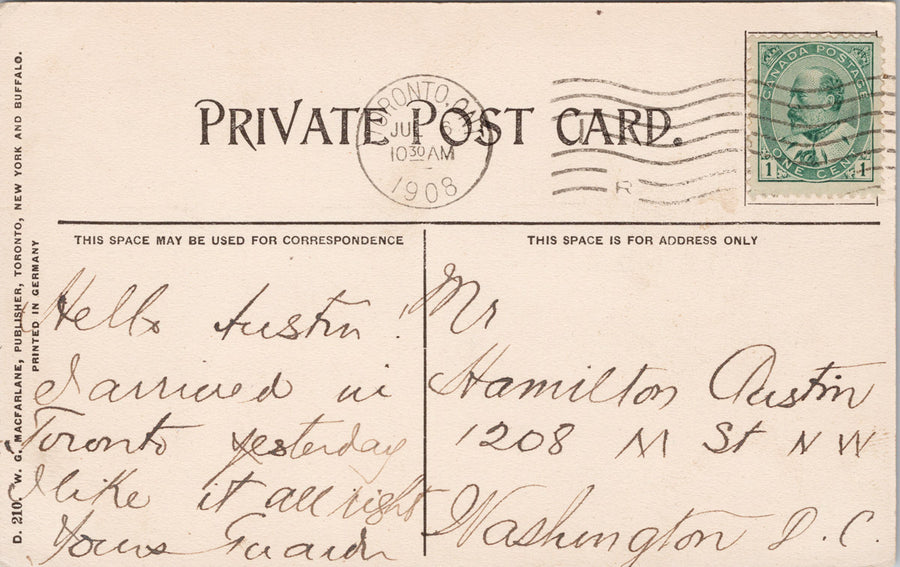 PRIVATE POST CARD.
TORONTO, ONT.
JUL 6
10 30 AM
1908
R
CANADA POSTAGE
1 ONE CENT 1
THIS SPACE MAY BE USED FOR CORRESPONDENCE
Hello Austin!
I arrived in
Toronto yesterday
I like it all right
Yours
THIS SPACE IS FOR ADDRESS ONLY
Mr
Hamilton Austin
1208 M St N W
Washington D. C.
D. 210. W. G. MACFARLANE, PUBLISHER, TORONTO, NEW YORK AND BUFFALO.
PRINTED IN GERMANY